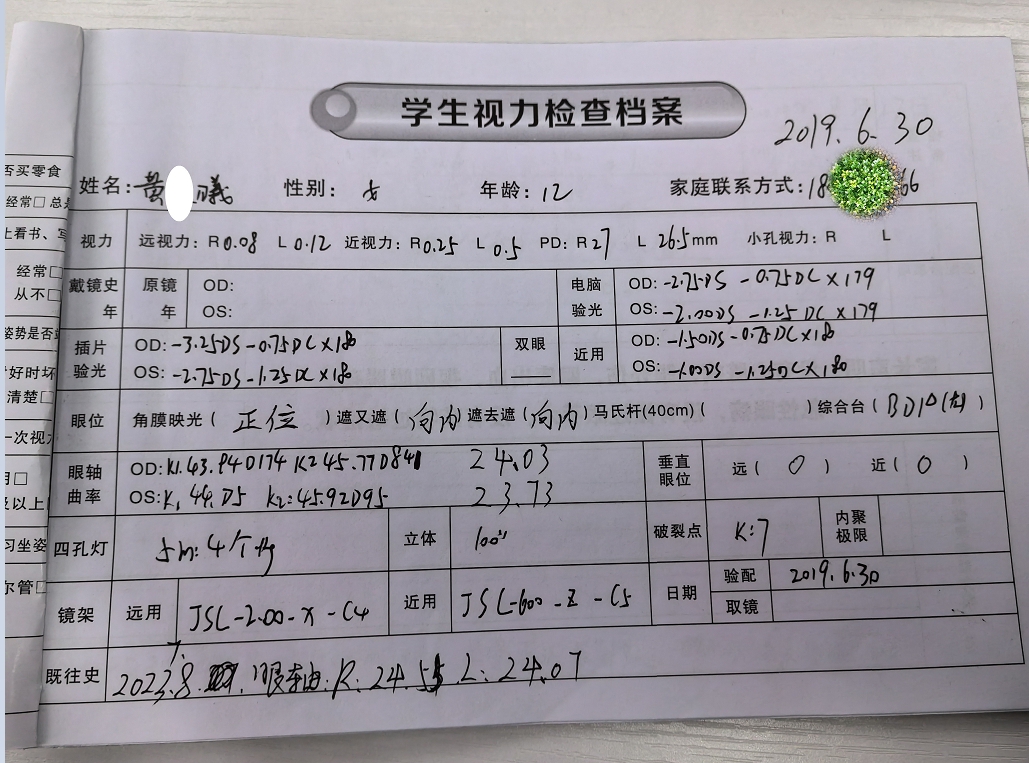 学生视力检查档案
2019.6.30
姓名:黄 曦 性别: 女 年龄:12 家庭联系方式:18 66
视力 远视力:R0.08 L0.12 近视力:R0.25 L0.5 PD:R27 L26.5mm 小孔视力:R L
戴镜史 年 原镜 年 OD: OS:
电脑验光 OD:-2.75DS -0.75DC×179
OS:-2.00DS -1.25DC×179
插片验光 OD:-3.25DS-0.75DC×180
OS:-2.75DS-1.25DC×180
双眼 近用 OD:-1.50DS-0.75DC×180
OS:-1.00DS-1.25DC×180
眼位 角膜映光(正位)遮又遮(向内)遮去遮(向内)马氏杆(40cm)( )综合台(BD1△( ))
眼轴曲率 OD:K1.43.94D174 K245.77D84 24.03
OS:K1.44. D5 K2:45.92D95 23.73
垂直眼位 远(0) 近(0)
四孔灯 5m:4个 立体 100" 破裂点 K:7 内聚极限
镜架 远用 JSL-2.00-X-C4 近用 JSL-600-Z-C5 日期 验配 2019.6.30
取镜
既往史 2023.8. 7. 眼轴:R:24.55 L:24.07
否买零食
经常□ 总是
上看书、写
经常□
从不□
姿势是否端
好时坏
清楚□
一次视力
月□
及以上
习坐姿
尔管□